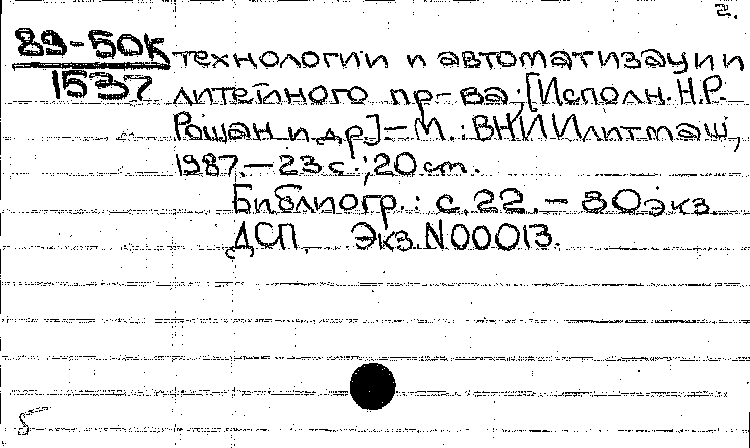 2.
89-50К технологии и автоматизации
1537 литейного пр-ва; [Исполн. Н.Р.
Рощан и др.] — М.: ВНИИлитмаш,
1987. — 23 с.; 20 см.
Библиогр.: с. 22. — 80 экз.
ДСП. Экз. N00013.
5